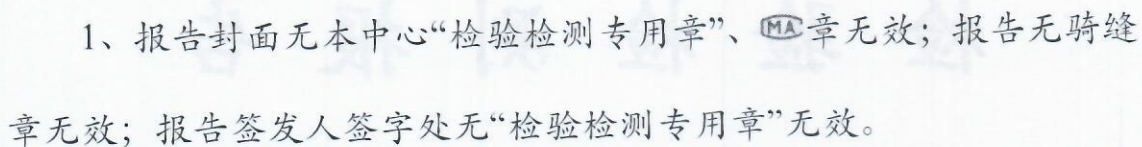 1、报告封面无本中心“检验检测专用章”、MA章无效；报告无骑缝
章无效；报告签发人签字处无“检验检测专用章”无效。